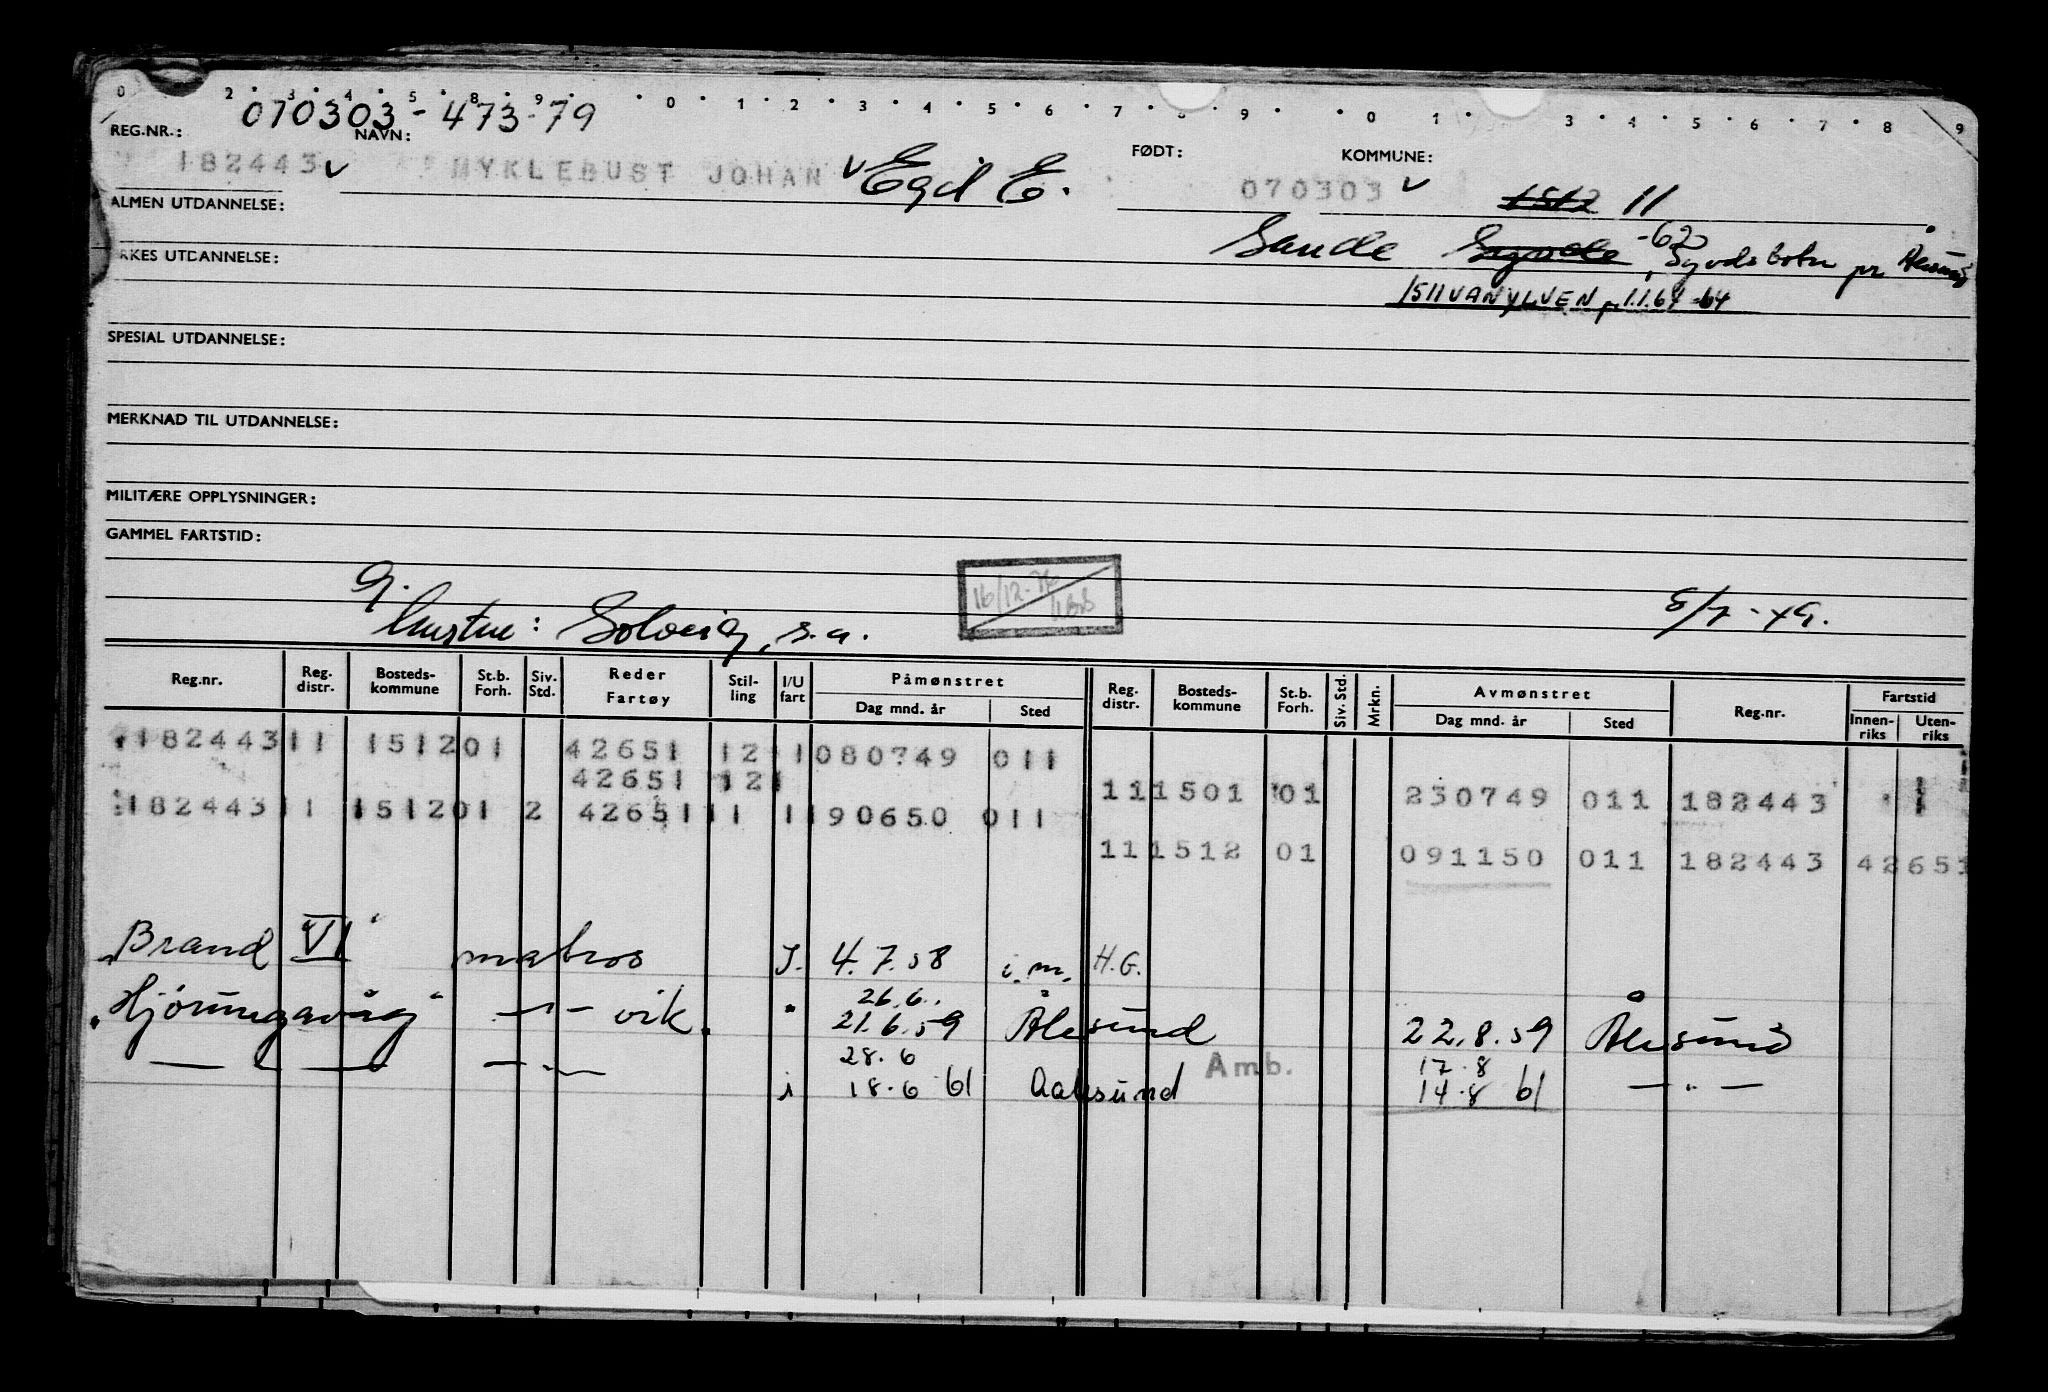 0 2 3 4 5 8 9 0 1 2 3 4 5 6 7 8 9 0 1 3 4 5 6 7 8 9
070303-473-79
REG.NR.: NAVN: FØDT: KOMMUNE:
182443 MYKLEBUST JOHAN Egil E. 070303 1512 11
ALMEN UTDANNELSE:
Sande -62 Syvdsbotn pr Ålesund
RKES UTDANNELSE:
1511 VANYLVEN pr 1.1.64 -64
SPESIAL UTDANNELSE:
MERKNAD TIL UTDANNELSE:
MILITÆRE OPPLYSNINGER:
GAMMEL FARTSTID:
g. 16/12-76 8/7-49.
Hustru: Solveig, s.a.
Reg.nr. Reg. distr. Bosteds-kommune St.b. Forh. Siv. Std. Reder Fartøy Stil-ling I/U fart Påmønstret Dag mnd. år Sted Reg. distr. Bosteds-kommune St.b. Forh. Siv. Std. Mrkn. Avmønstret Dag mnd. år Sted Reg.nr. Fartstid Innen-riks Uten-riks
182443 11 1512 01 42651 12 1 080749 011
42651 12 1 11 1501 01 230749 011 182443
182443 11 1512 01 2 42651 11 1 190650 011
11 1512 01 091150 011 182443 42651
"Brand VI" matros I. 4.7.58 i.m. H.G.
26.6.
"Hjörungavåg" -"- vik. " 21.6.59 Ålesund 22.8.59 Ålesund
28.6 Amb. 17.8
— " — -"- i 18.6 61 Aalesund 14.8 61 — " —